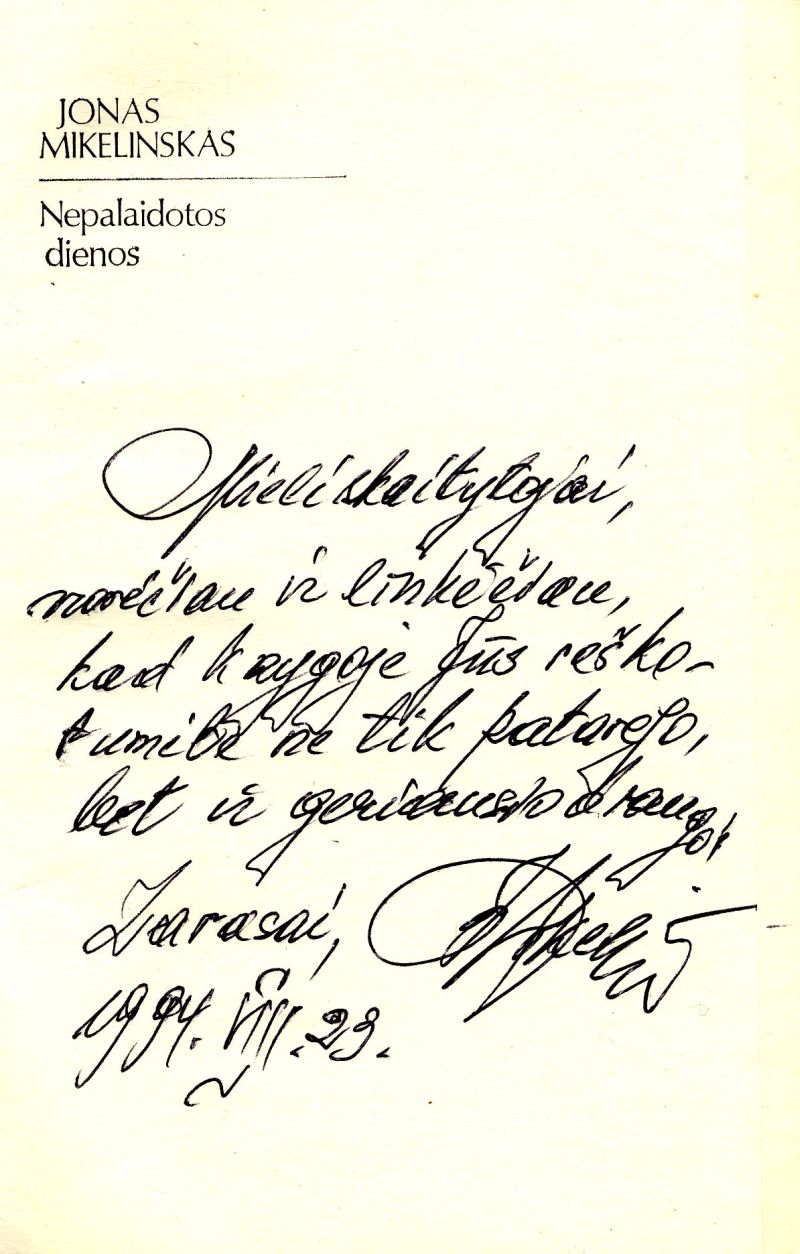 JONAS
MIKELINSKAS
Nepalaidotos
dienos
Mieli skaitytojai,
norėčiau ir linkėčiau,
kad knygoje Jūs ieško-
tumite ne tik patarėjo,
bet ir geriausio draugo.
Zarasai,
1994. VIII. 23.